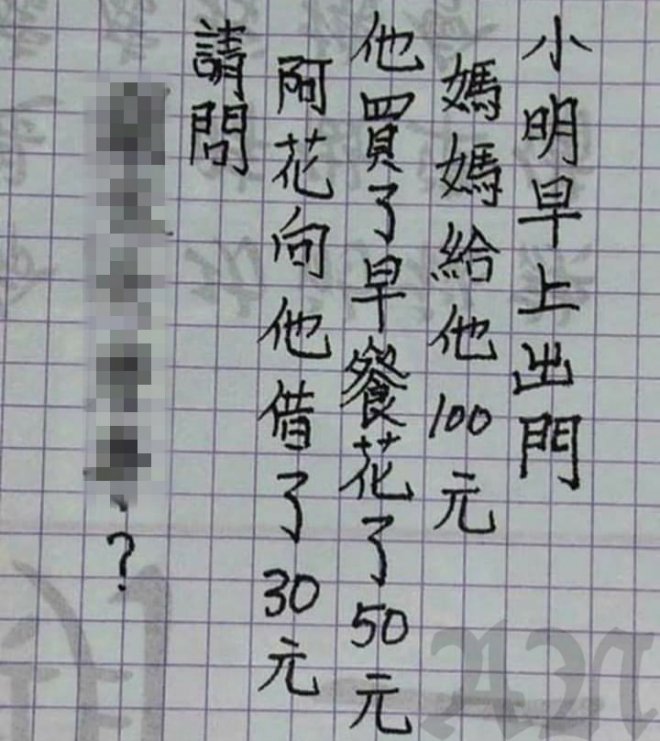 小明早上出門
媽媽給他100元
他買了早餐花了50元
阿花向他借了30元
請問
?